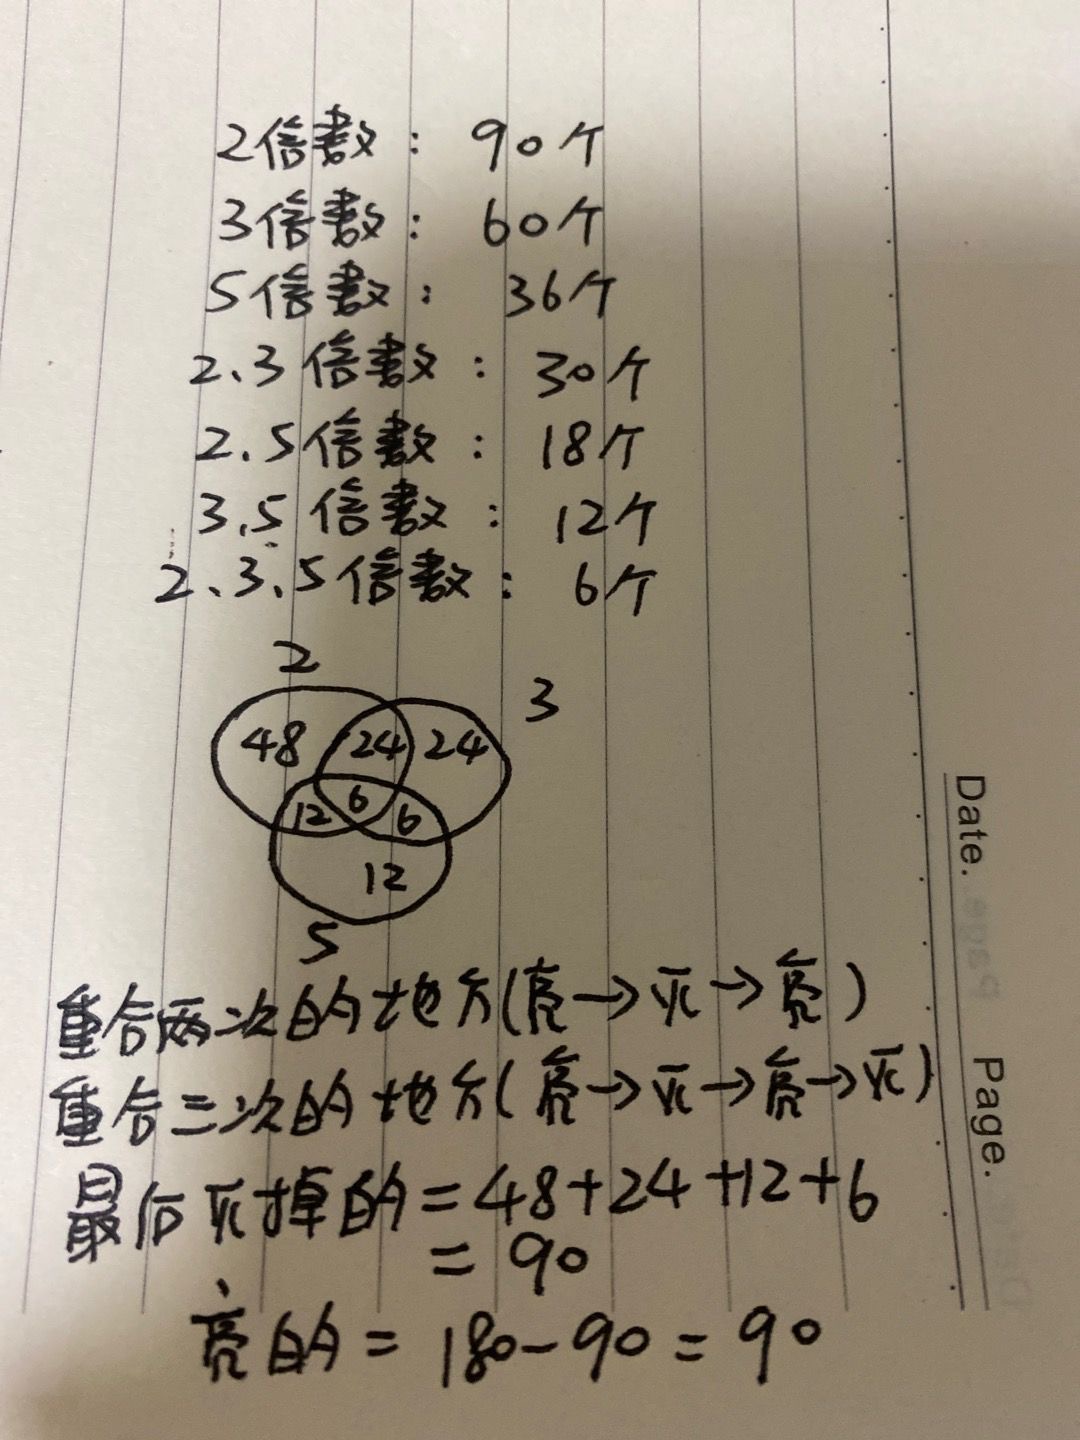 2倍数: 90个
3倍数: 60个
5倍数: 36个
2、3倍数: 30个
2、5倍数: 18个
3、5倍数: 12个
2、3、5倍数: 6个
2
3
48 24 24
12 6 6
12
5
重合两次的地方(亮→灭→亮)
重合三次的地方(亮→灭→亮→灭)
最后灭掉的=48+24+12+6
=90
亮的=180-90=90
Date.
Page.